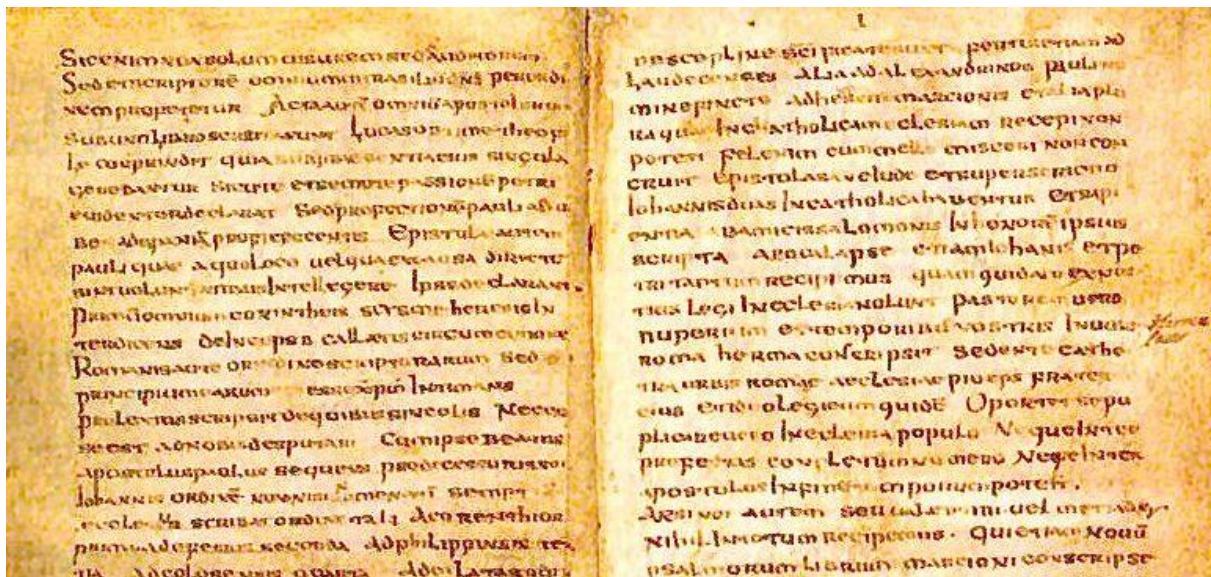 Sic enim non solum uisurem sed & auditorem
Sed & scriptorē omnium mirabiliū dn̄i per ordi
nem profetetur Acta autē omniū apostolorum
sub uno libro scribta sunt Lucas obtime theofi
le conprindit quia sub praesentia eius singula
gerebantur sicute et semote passionē petri
euidenter declarat Sed profectionē pauli ab ur
be ad spaniā proficescentis Epistulae autem
pauli quae a quo loco uel qua ex causa directe
sint uolentatibus intellegere ipse declarant
primū omnium corintheis scysme heresis in
terdicens deinceps b callaetis circumcisione
Romanis autē ordine scripturarum sed et
principium earum esse xpm̄ intimans
prolexius scripsit de quibus sincolis neces
se est ad nobis desputari Cum ipse beatus
apostolus paulus sequens prodecessoris sui
Iohannis ordinē nonnisi nomenatī semptē
eccleseis scribat ordine tali a corenthios
prima ad efesius seconda ad philippinses ter
tia ad colosensis quarta ad calatas quin
I
descepline scificate sunt fertur etiam ad
Laudecenses alia ad alexandrinos pauli no
mine fincte ad heresem marcionis et alia plu
ra quae in chatholicam eclesiam recepi non
potest Fel enim cum melle misceri non con
cruit Epistola sane iude et superscrictio
Iohannis duas in catholica habentur Et sapi
entia ab amicis salomonis in honorē ipsius
scripta Apocalapse etiam Iohanis et pe
tri tantum recipimus quam quidam ex nos
tris legi in eclesia nolunt Pastorem uero
nuperrim et temporibus nostris In urbe
roma herma conscripsit sedente cathe
tra urbis romae aeclesiae pio eps fratre
eius et ideo legi eum quidē Oportet se pu
plicare uero in eclesia populo Neque inter
profetas conpletum numero Neque inter
apostolos in finē temporum potest.
Arsinoi autem seu ualentini uel mitiadis
nihil in totum recipemus. Qui etiam nouū
psalmorum librum marcioni conscripse